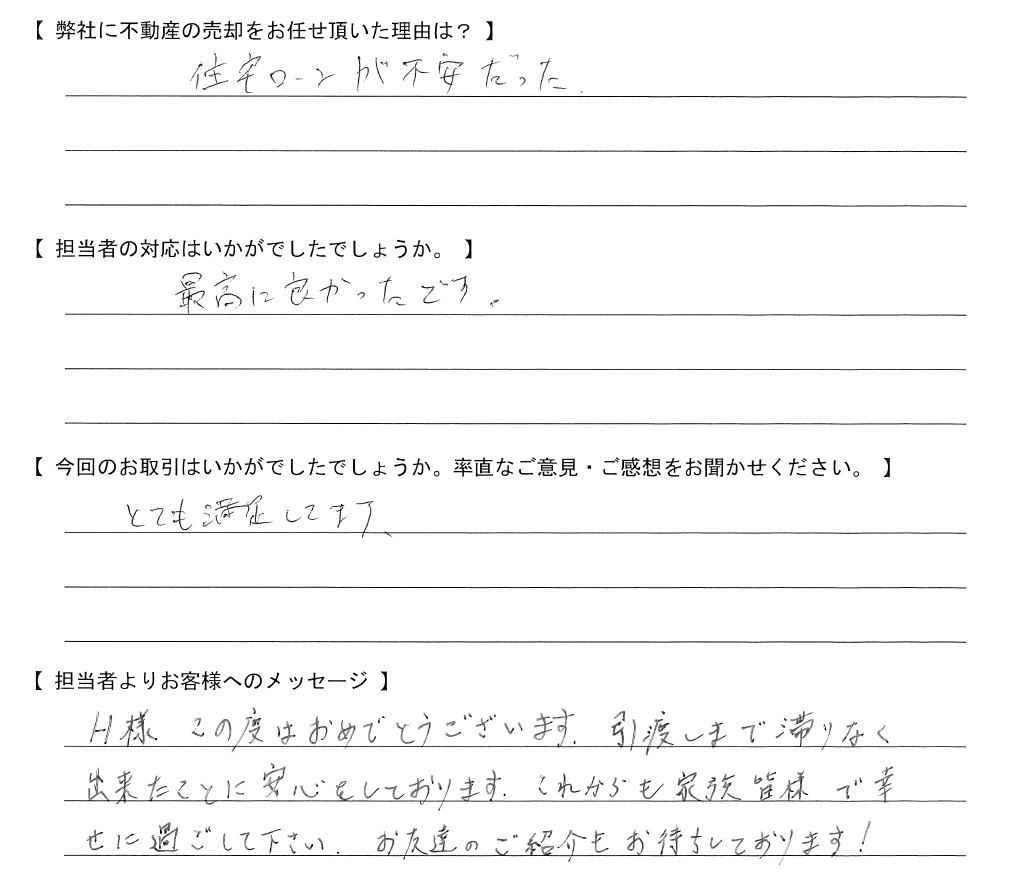 【 弊社に不動産の売却をお任せ頂いた理由は？ 】
住宅ローンが不安だった.
【 担当者の対応はいかがでしたでしょうか。 】
最高に良かったです。
【 今回のお取引はいかがでしたでしょうか。率直なご意見・ご感想をお聞かせください。 】
とても満足してます、
【 担当者よりお客様へのメッセージ 】
H様 この度はおめでとうございます. 引渡しまで滞りなく
出来たことに安心をしております. これからも家族皆様で幸
せに過ごして下さい. お友達のご紹介もお待ちしております!